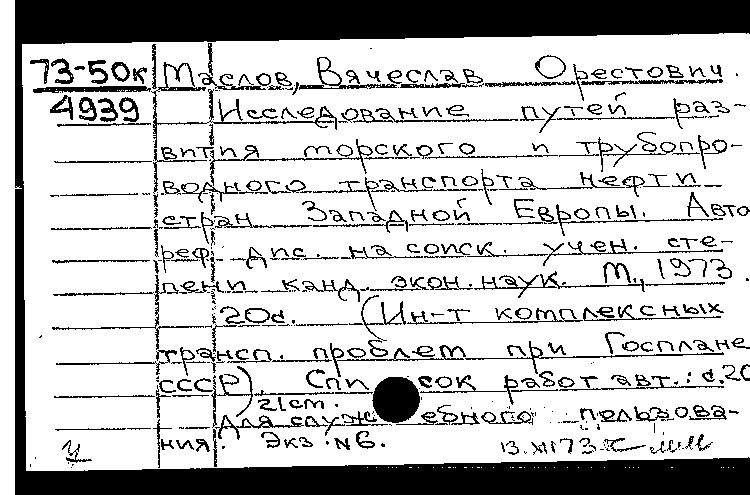 73-50к Маслов, Вячеслав Орестович.
4939 Исследование путей раз-
вития морского и трубопро-
водного транспорта нефти
стран Западной Европы. Авто
реф. дис. на соиск. учен. сте-
пени канд. экон. наук. М., 1973.
20с. (Ин-т комплексных
трансп. проблем при Госплане
СССР). Список работ авт.: с.20
21см.
Для служебного пользова-
ния. Экз. №6. 13.XII73